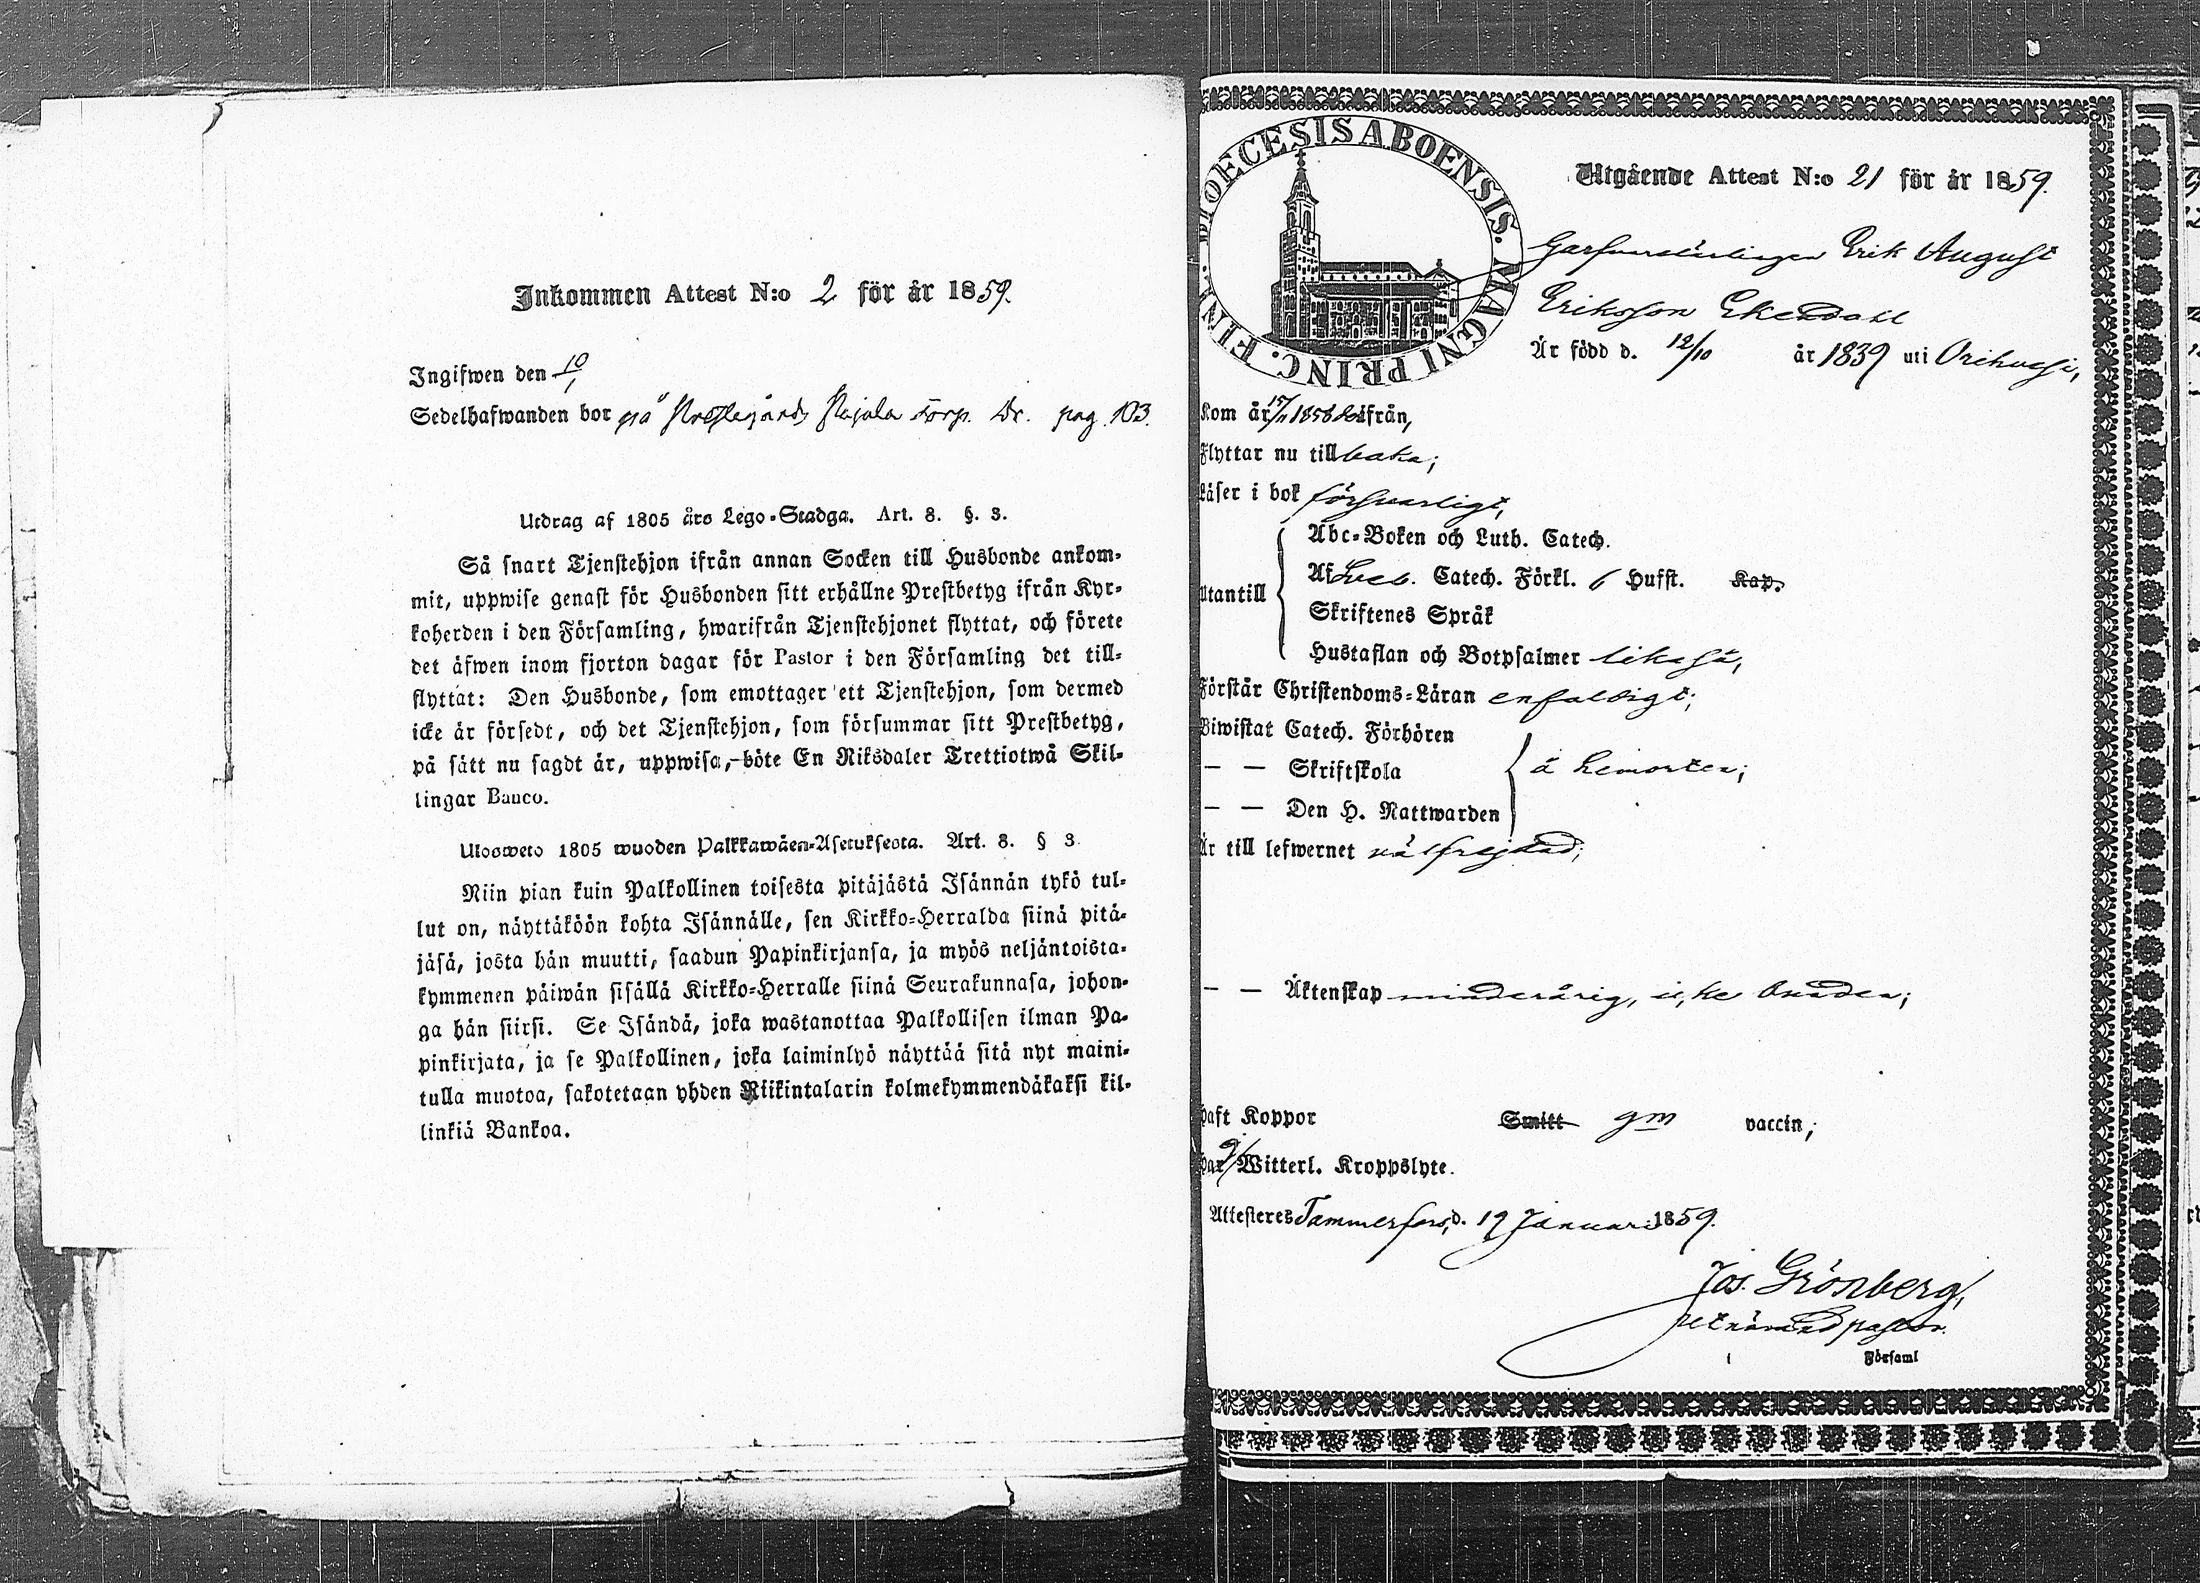 Inkommen Attest N:o 2 för år 1859.
Ingifwen den 10/1
Sedelhafwanden bor på Torp. Dr. pag. 103.
Utdrag af 1805 års Lego-Stadga. Art. 8. §. 3.
Så snart Tjenstehjon ifrån annan Socken till Husbonde ankom-
mit, uppwise genast för Husbonden sitt erhållne Prestbetyg ifrån Kyr-
koherden i den Församling, hwarifrån Tjenstehjonet flyttat, och förete
det äfwen inom fjorton dagar för Pastor i den Församling det till-
flyttat: Den Husbonde, som emottager ett Tjenstehjon, som dermed
icke är försedt, och det Tjenstehjon, som försummar sitt Prestbetyg,
på sätt nu sagdt är, uppwisa, böte En Riksdaler Trettiotwå Skil-
lingar Banco.
Ulosweto 1805 wuoden Palkkawäen-Asetuksesta. Art. 8. § 3.
Niin pian kuin Palkollinen toisesta pitäjästä Isännän tykö tul-
lut on, näyttäköön kohta Isännälle, sen Kirkko-Herralda siinä pitä-
jäsä, josta hän muutti, saadun Papinkirjansa, ja myös neljäntoista-
kymmenen päiwän sisällä Kirkko-Herralle siinä Seurakunnasa, johon-
ga hän siirsi. Se Isändä, joka wastanottaa Palkollisen ilman Pa-
pinkirjata, ja se Palkollinen, joka laiminlyö näyttää sitä nyt maini-
tulla muotoa, sakotetaan yhden Riikintalarin kolmekymmendäkaksi kil-
linkiä Bankoa.
DIOECESIS ABOENSIS. MAGNI PRINC. FINL.
Utgående Attest N:o 21 för år 1859.
Garfvarelärlingen Erik August
Eriksson Ekendahl
Är född d. 12/10 år 1839 uti Orihvesi,
Kom år 17/11 1858 därifrån,
Flyttar nu tillbaka;
Läser i bok försvarligt,
Utantill
Abc-Boken och Luth. Catech.
Af Sveb. Catech. Förkl. 6 Hufst. Kap.
Skriftenes Språk
Hustaflan och Botpsalmer likaså,
Förstår Christendoms-Läran enfaldigt;
Biwistat Catech. Förhören
— — Skriftskola å hemorten;
— — Den H. Nattwarden
Är till lefwernet välfrejdad;
— — Äktenskap minderårig, icke bunden;
Haft Koppor Smitt gm vaccin;
Har Witterl. Kroppslyte.
Attesteres Tammerfors, d. 19 Januari 1859.
Jos. Grönberg,
vetnämnd pastor.
i Församl